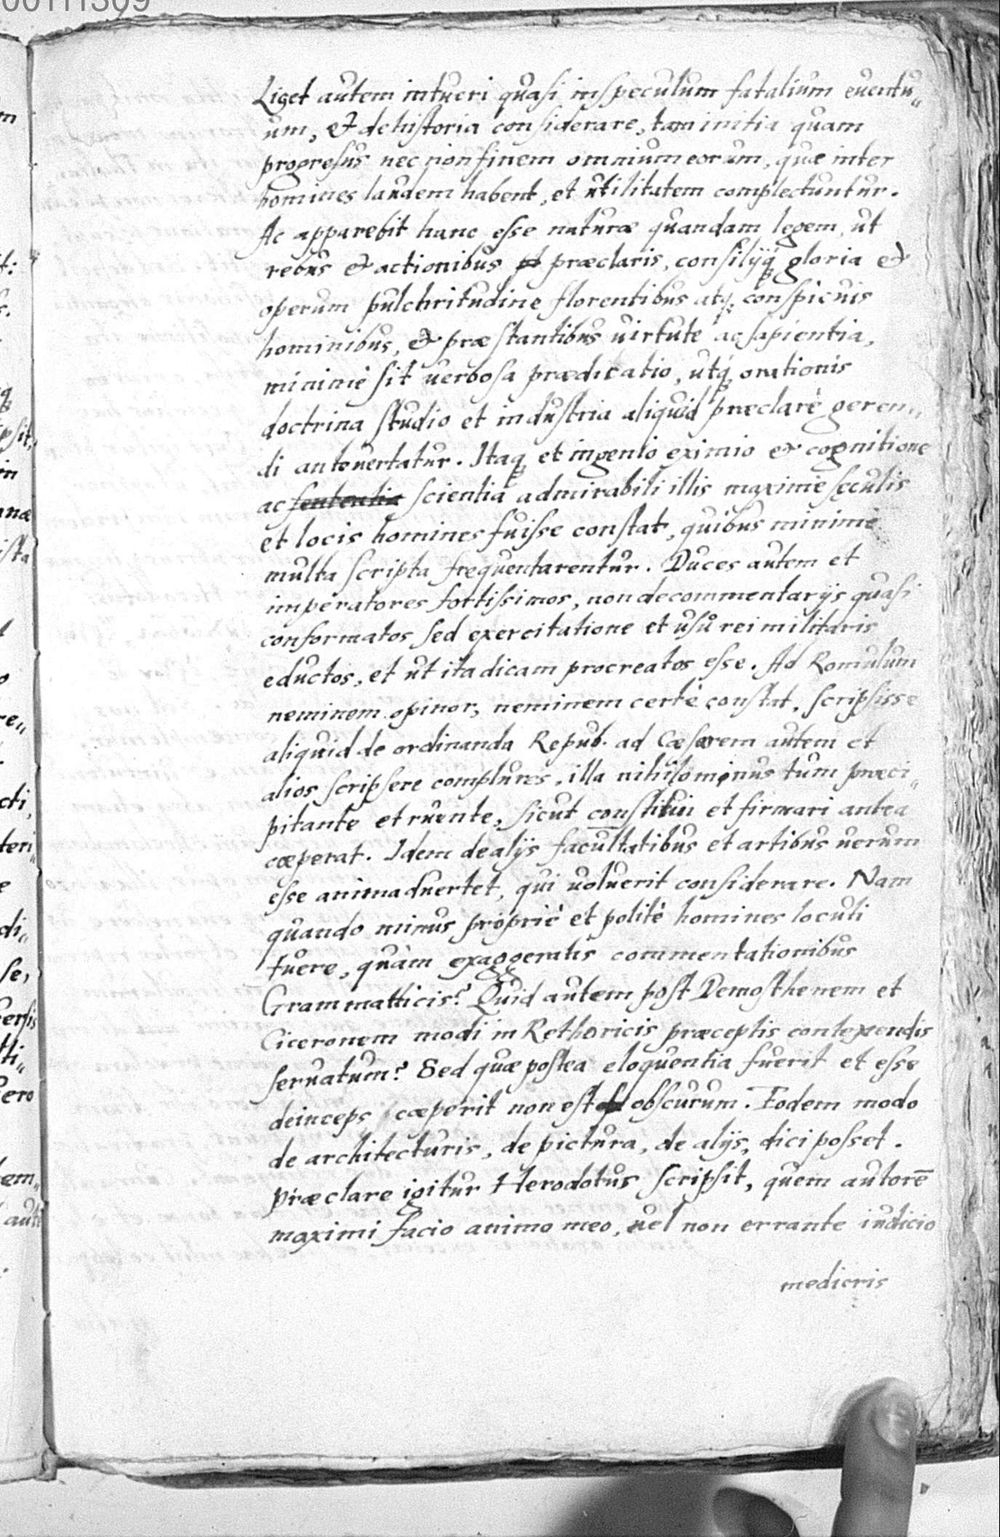 00111309
Liget autem intueri quasi in speculum fatalium euentu„
um, & de historia considerare, tam initia quam
progresus nec non finem omnium eorum, quæ inter
homines laudem habent, et utilitatem complectuntur.
Ac apparebit hanc esse naturæ quandam legem, ut
rebus & actionibus præclaris, consilijq gloria &
operum pulchritudine florentibus atq conspicuis
hominibus, & præstantibus uirtute ac sapientia,
minimè sit uerbosa prædicatio, utq orationis
doctrina studio et industria aliquid præclarè geren„
di antevertatur. Itaq et ingenio eximio & cognitione
ac sententia scientia admirabili illis maximè seculis
et locis homines fuisse constat, quibus minime
multa scripta frequentarentur. Duces autem et
imperatores fortissimos, non de commentarijs quasi
conformatos sed exercitatione et usu rei militaris
eductos, et ut ita dicam procreatos esse. Ad Romulum
neminem opinor, neminem certè constat, scripsisse
aliquid de ordinanda Repub. ad Cæsarem autem et
alios scripsere complures, illa nihilominus tum præci„
pitante et ruente, sicut constitui et firmari antea
cœperat. Idem de alijs facultatibus et artibus uerum
esse animaduertet, qui uoluerit considerare. Nam
quando minus propriè et politè homines loculi
fuere, quàm exaggeratis commentationibus
Grammatticis? Quid autem post Demosthenem et
Ciceronem modi in Rethoricis præceptis contexendis
seruatum? Sed quæ postea eloquentia fuerit et esse
deinceps cæperit non est obscurum. Eodem modo
de architecturis, de pictura, de alijs, dici posset.
Præclare igitur Herodotus scripsit, quem autorē
maximi facio animo meo, uel non errante iudicio
mediocris